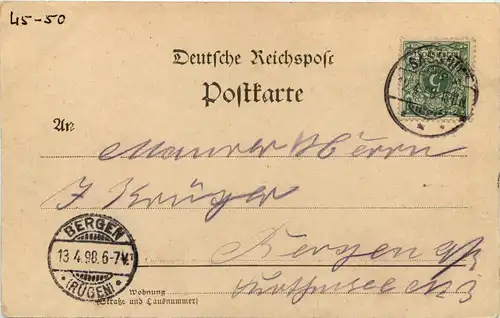 45-50
Deutsche Reichspost
Postkarte
An
Maurer Herrn
J Krüger
Bergen a/R
BERGEN
13.4.98.6-7N.
* (RÜGEN) *
SASSNITZ
Wohnung
(Straße und Hausnummer)